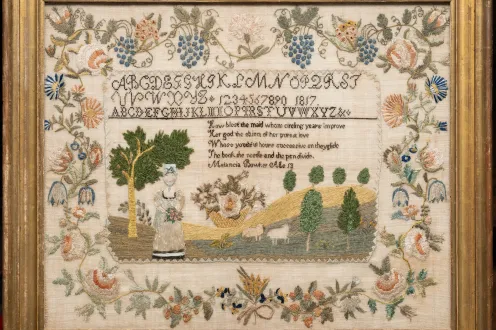 ABCDEFGHIJKLMNOPQRST
UVWXYZ 1234567890 1817
ABCDEFGHIJKLMNOPQRSTUVWXYZ&
How blest the maid whom circling years improve
Her god the object of her purest love
Whose youthful hours successive as they glide
The book the needle and the pen divide
Aged 13